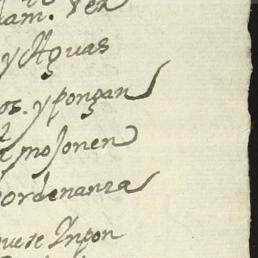 y Aguas
os. y pongan
mojonen
ordenanza
que se Inpon